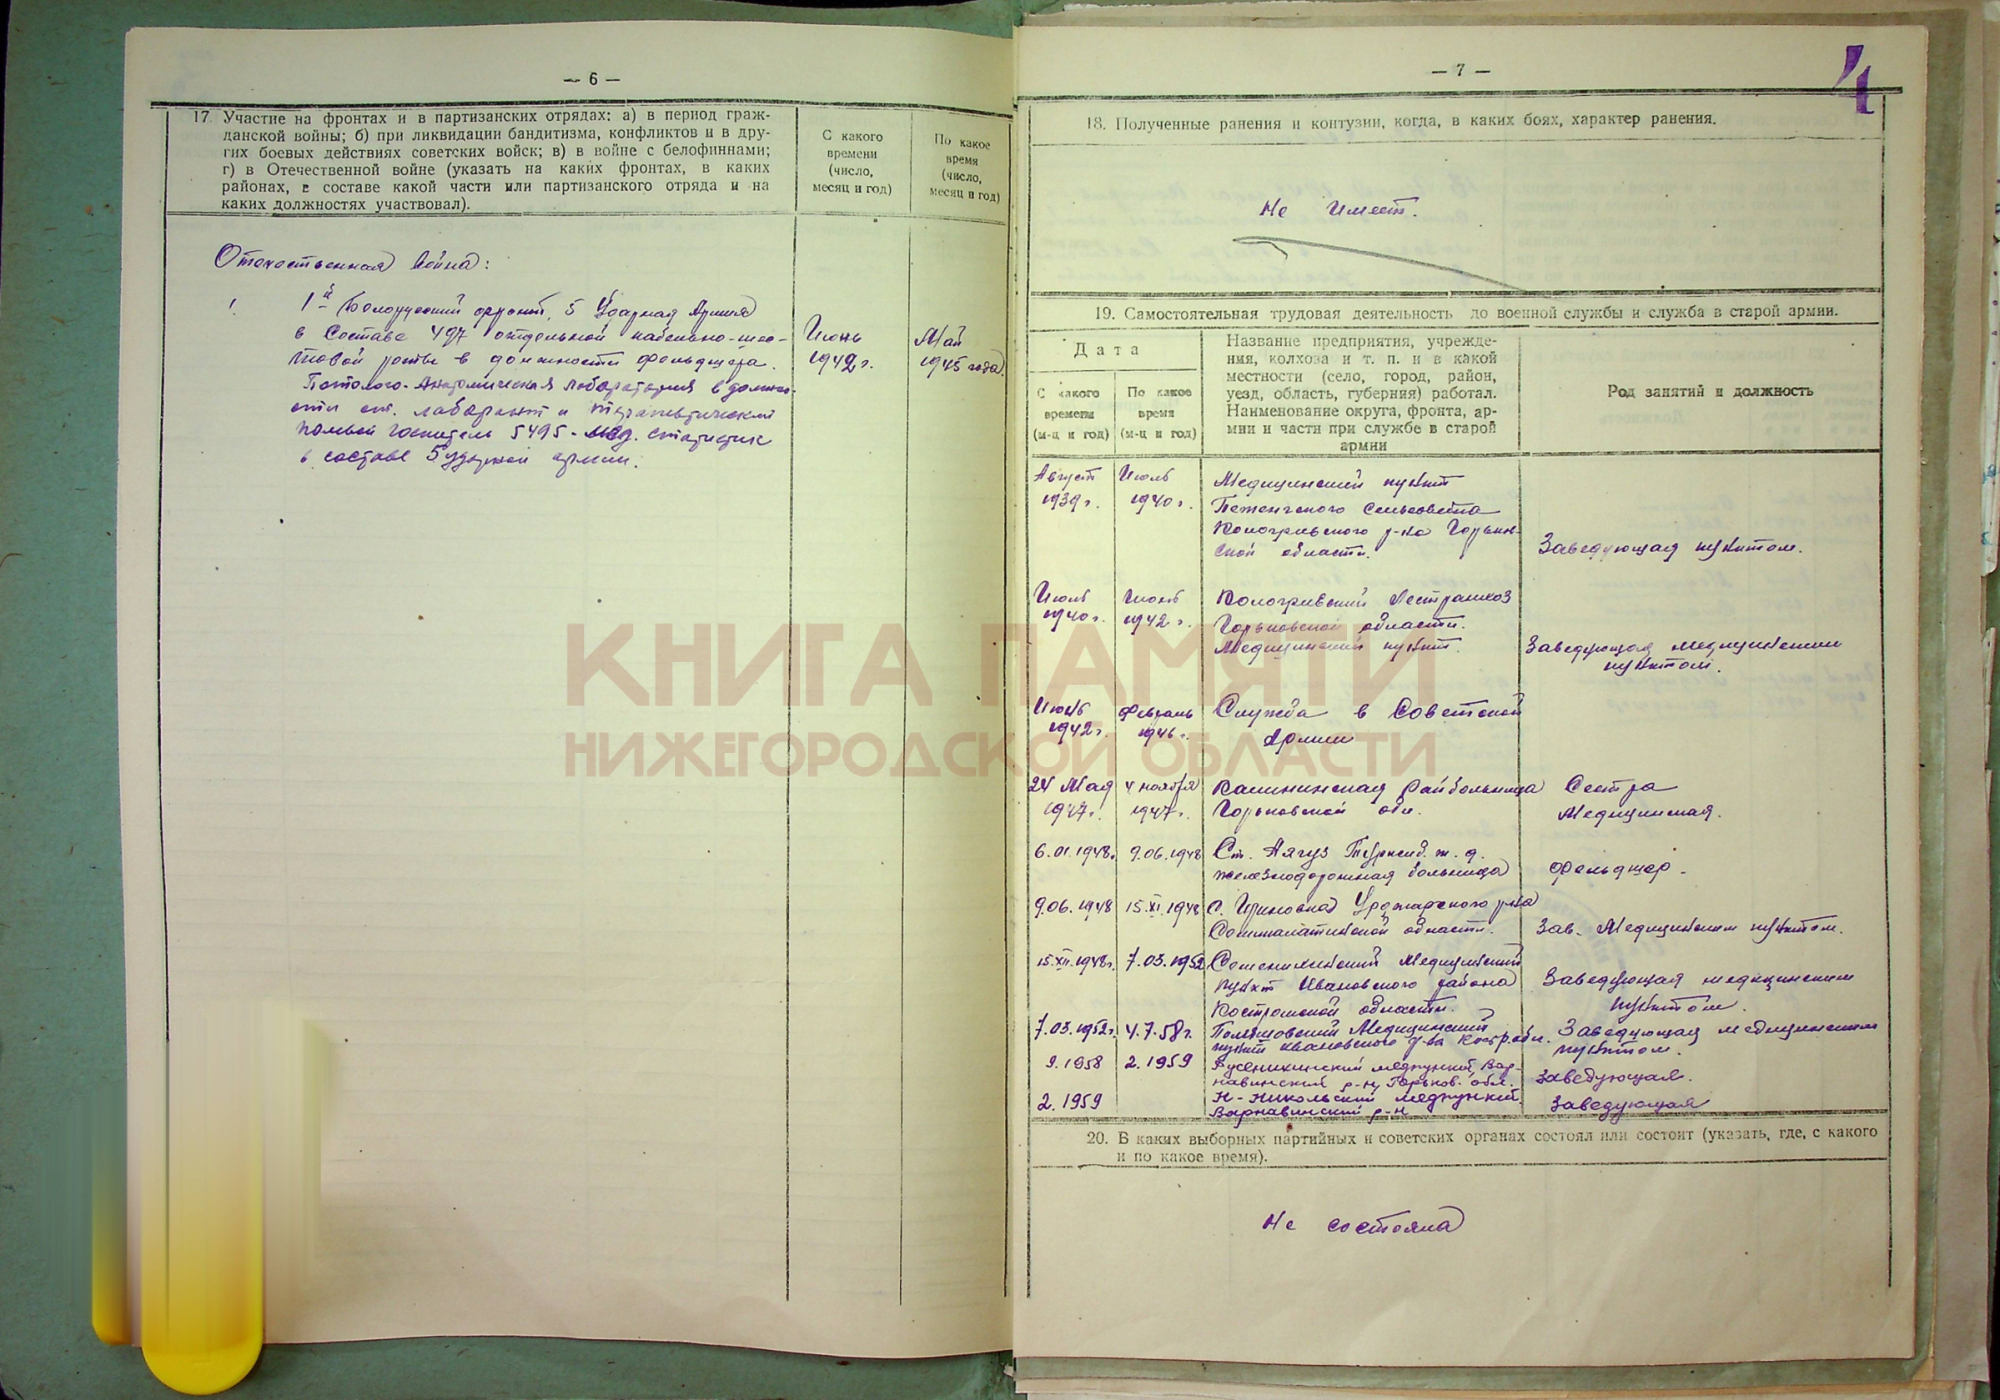 — 6 —
17. Участие на фронтах и в партизанских отрядах: а) в период граж-
данской войны; б) при ликвидации бандитизма, конфликтов и в дру-
гих боевых действиях советских войск; в) в войне с белофиннами;
г) в Отечественной войне (указать на каких фронтах, в каких
районах, в составе какой части или партизанского отряда и на
каких должностях участвовал).
С какого
времени
(число,
месяц и год)
По какое
время
(число,
месяц и год)
Отечественная война:
1й Белорусский фронт, 5 Ударная Армия
в составе 497 отдельной кабельно-шес-
товой роты в должности фельдшера.
Патолого-Анатомическая лаборатория в должно-
сти ст. лаборант и терапевтический
полевой госпиталь 5495 - мед. статистик
в составе 5 ударной армии.
Июнь
1942 г.
Май
1945 года.
— 7 —
4
18. Полученные ранения и контузии, когда, в каких боях, характер ранения.
Не имеет.
19. Самостоятельная трудовая деятельность до военной службы и служба в старой армии.
Дата
С какого
времени
(м-ц и год)
По какое
время
(м-ц и год)
Название предприятия, учрежде-
ния, колхоза и т. п. и в какой
местности (село, город, район,
уезд, область, губерния) работал.
Наименование округа, фронта, ар-
мии и части при службе в старой
армии
Род занятий и должность
Август
1939 г.
Июль
1940 г.
Медицинский пункт
сельсовета
Кологривского р-на Горьков-
ской области.
Заведующая пунктом.
Июль
1940 г.
Июнь
1942 г.
Кологривский Лестранхоз
Горьковской области.
Медицинский пункт.
Заведующая медицинским
пунктом.
Июнь
1942 г.
Февраль
1946 г.
Служба в Советской
Армии
24 Мая
1947 г.
4 ноября
1947 г.
Калининская Райбольница
Горьковской обл.
Сестра
Медицинская.
6.01.1948 г.
9.06.1948
Ст. Аягуз Турксиб. ж. д.
железнодорожная больница
Фельдшер.
9.06.1948
15.XI.1948
С. Урджарского р-на
Семипалатинской области.
Зав. Медицинским пунктом.
15.XII.1948 г.
7.03.1952
Медицинский
пункт Ивановского района
Костромской области.
Заведующая медицинским
пунктом.
7.03.1952 г.
4.7.58 г.
Медицинский
пункт Ивановского р-на Костр. обл.
Заведующая медицинским
пунктом.
9.1958
2.1959
медпункт Вар-
навинский р-н, Горьков. обл.
Заведующая.
2.1959
Н-Никольский медпункт.
Варнавинский р-н
Заведующая
20. В каких выборных партийных и советских органах состоял или состоит (указать, где, с какого
и по какое время).
Не состояла
КНИГА ПАМЯТИ
НИЖЕГОРОДСКОЙ ОБЛАСТИ